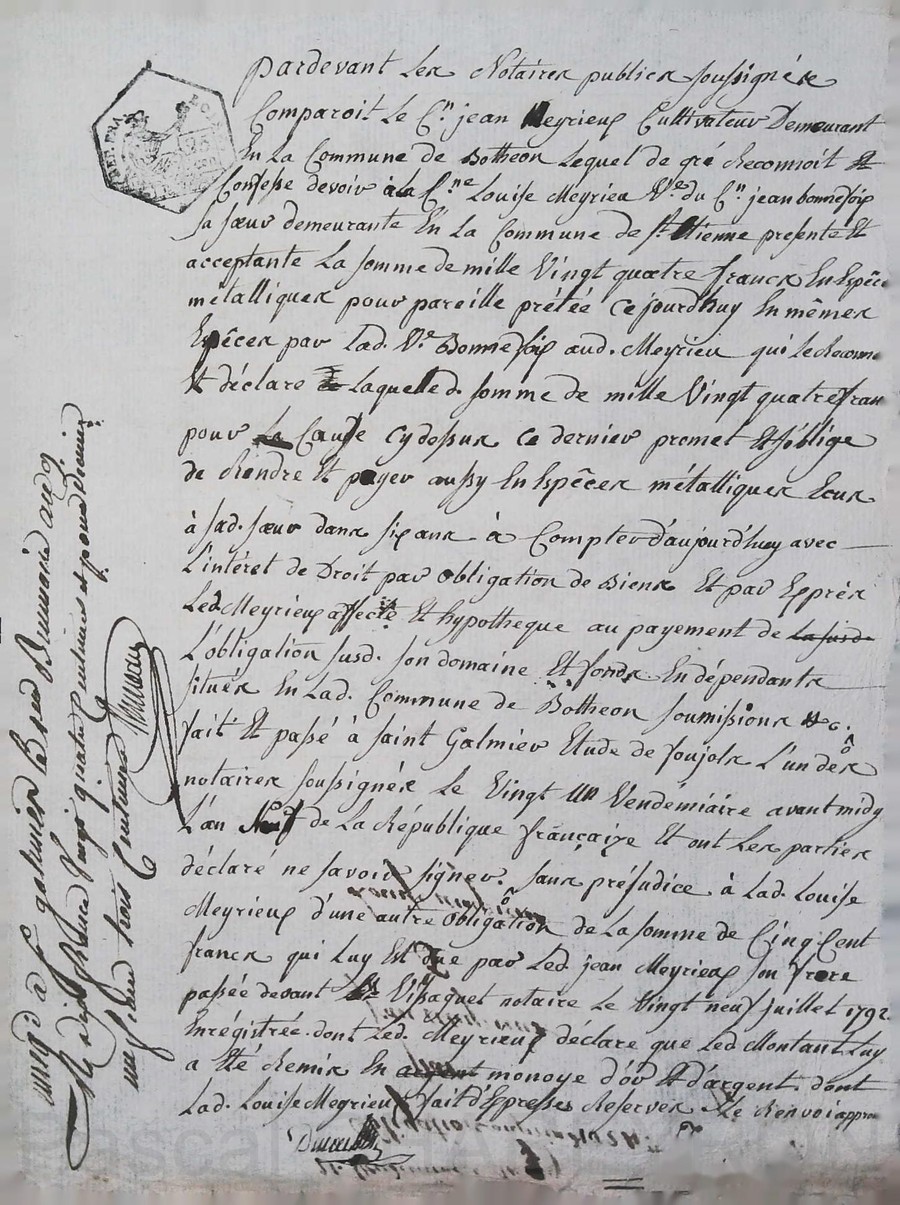 pardevant Les Notaires publics soussignés
Comparoit Le C.n jean Meyrieux Cultivateur Demeurant
En La Commune de Botheon Lequel de gré Reconnoit Et
Confesse devoir à la C.ne Louise Meyrieu V.e du C.n jean bonnefoix
sa sœur demeurante En La Commune de S.t Etienne presente Et
acceptante La somme de mille Vingt quatre francs En Espêce
métalliques pour pareille prétée ce jourd'huy En mêmes
Espêces par Lad. V.e Bonnefoix aud. Meyrieu qui Le Reconn
Et déclare Laquelle d. somme de mille Vingt quatre fran
pour La Causse cydessus ce dernier promet Et s'oblige
de Rendre Et payer aussy En Espêces métalliques Ecus
à sad. sœur dans six ans à Compter d'aujourd'huy avec
L'intéret de Droit par obligation de Biens Et par Exprès
Led. Meyrieux affecte Et hypotheque au payement de La susd.
L'obligation susd. son domaine Et fonds En dépendants
situés En Lad. Commune de Botheon soumissions &c.
fait Et passé à saint Galmier Etude de soujols L'un des
notaires soussignés Le Vingt un Vendémiaire avant midy
L'an Neuf de La République française Et ont Les parties
déclaré ne savoir signer. sans préjudice à Lad. Louise
Meyrieux d'une autre obligation de La somme de Cinq Cent
francs qui Luy Est due par Led. jean Meyrieux son frere
passée devant Vissaguet notaire Le Vingt neuf juillet 1792.
Enrégistrée dont Led. Meyrieux déclare que Led Montant Luy
a Eté Remis En argent monoye d'or Et d'argent dont
Lad. Louise Meyrieux fait d'Expresses Reserves Le Renvoi appro
à S.t galmier Le
quatre